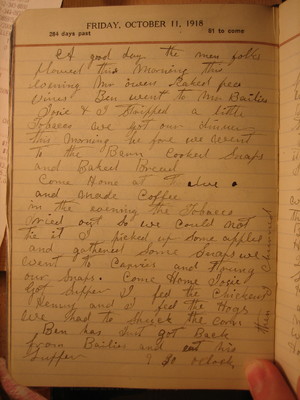 FRIDAY, OCTOBER 11, 1918
284 days past 81 to come
A good day the men folks
plowed this Morning this
evening Mr Owens Raked peas
vines. Ben went to Mr Bailies
Josie & I Stripped a little
Tobacco we got our dinner
this Morning be fore we went
to the Barn Cooked Snaps
and Baked Bread
Come Home at
and Made Coffee
in the evening the Tobacco
dried out So we could not
tie it I picked up Some apples
and gathered Some Snaps we
went to and
our Snaps. Come Home Josie
Got Supper I fed the Chickens
and I fed the Hogs
We had to Shuck the corn
Ben has Just got Back
from Bailies and eat his
Supper 9 30 oclock